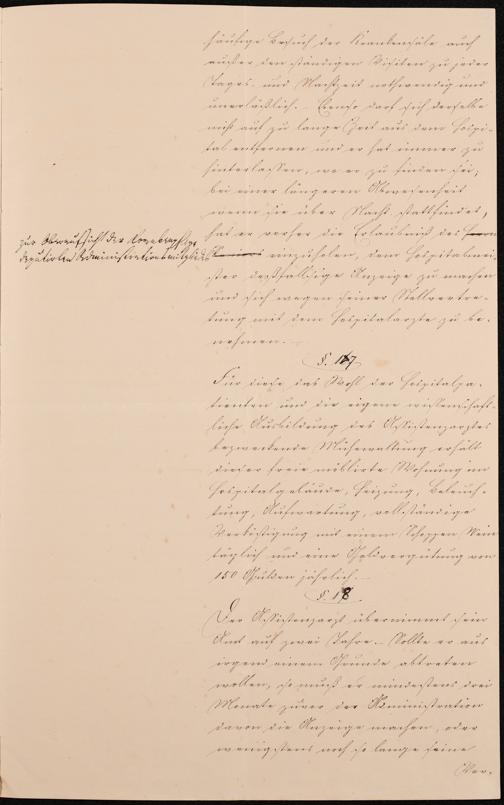 häufige Besuch der Krankensäle auch
außer den ständigen Visiten zu jeder
Tages- und Nachtzeit nothwendig und
unerläßlich. Ebenso darf sich derselbe
nicht auf zu lange Zeit aus dem Hospi-
tal entfernen und er hat immer zu
hinterlassen, wo er zu finden sei;
bei einer längeren Abwesenheit
wenn sie über Nacht stattfindet,
hat er vorher die Erlaubniß des
zur Oberaufsicht der Krankenpflege
deputirten Administrationsmitglieds
einzuholen, dem Hospitalmei-
ster deßfallsige Anzeige zu machen
und sich wegen seiner Stellvertre-
tung mit dem Hospitalarzte zu be-
nehmen.
§. 17
Für diese das Wohl der Hospitalpa-
tienten und die eigene wissenschaft-
liche Ausbildung des Assistenzarztes
bezweckende Mühewaltung erhält
dieser freie möblirte Wohnung im
Hospitalgebäude, Heizung, Beleuch-
tung, Aufwartung, vollständige
Verköstigung mit einem Schoppen Wein
täglich und eine Geldvergütung von
150 Gulden jährlich.
§. 18
Der Assistenzarzt übernimmt sein
Amt auf zwei Jahre. Sollte er aus
irgend einem Grunde abtreten
wollen, so muß er mindestens drei
Monate zuvor der Administration
davon die Anzeige machen, oder
wenigstens noch so lange seine
Ver-